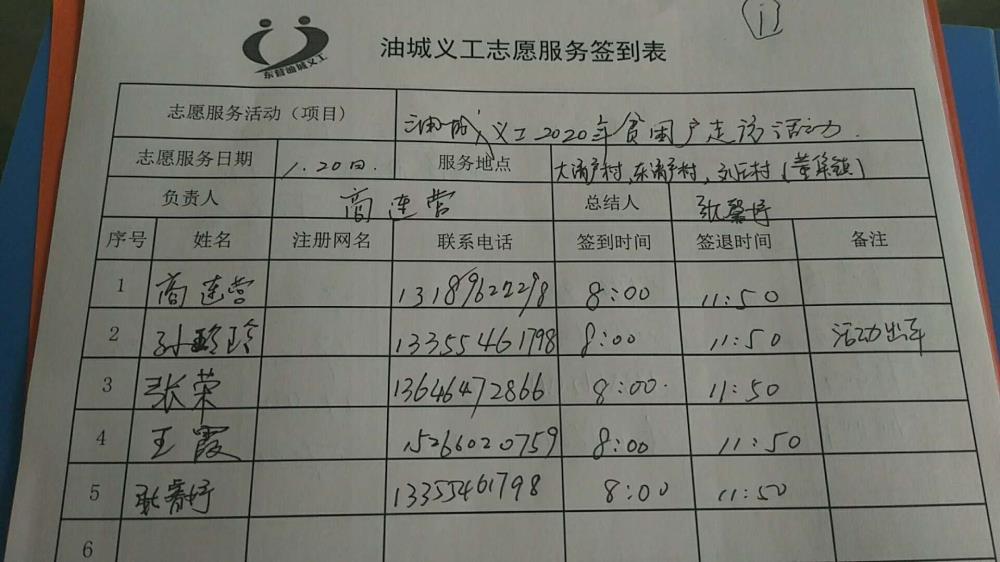 ①
东营油城义工
油城义工志愿服务签到表
志愿服务活动（项目） 油城义工2020年贫困户走访活动.
志愿服务日期 1.20日. 服务地点 大浦户村、东浦户村、刘庄村(董集镇)
负责人 商连营 总结人 张馨婷
序号 姓名 注册网名 联系电话 签到时间 签退时间 备注
1 商连营 13189622298 8:00 11:50
2 孙玲 13355461798 8:00 11:50 活动出车
3 张荣 13646472866 8:00 11:50
4 王霞 15266020759 8:00 11:50
5 耿睿婷 13355461798 8:00 11:50
6